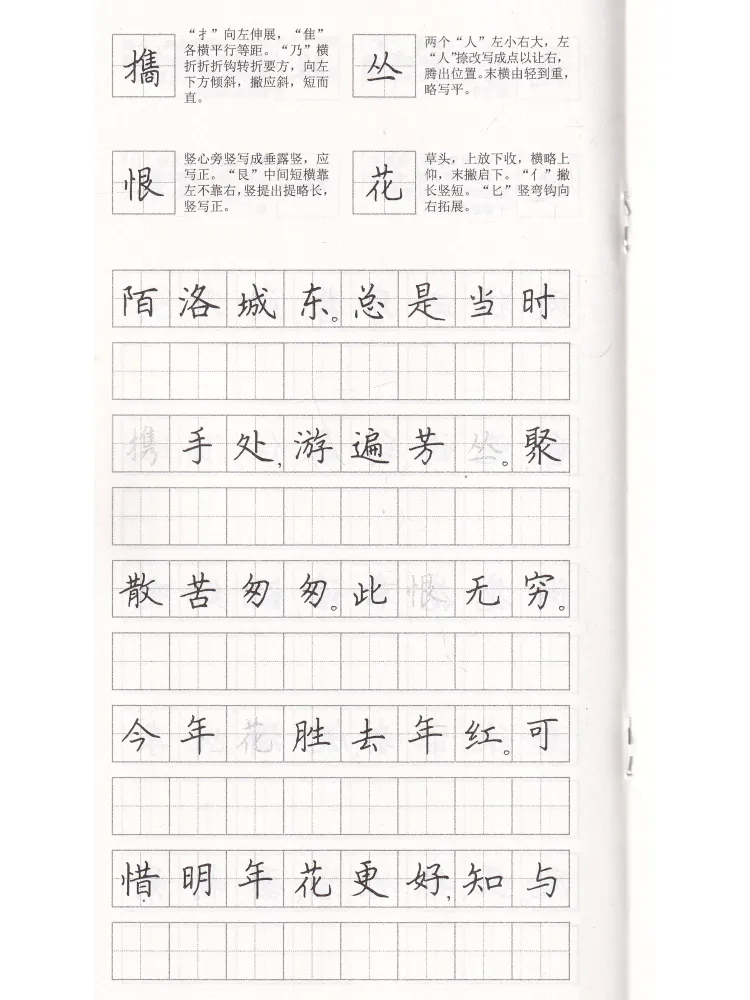 攜
“扌”向左伸展，“隹”
各横平行等距。“乃”横
折折折钩转折要方，向左
下方倾斜，撇应斜，短而
直。
丛
两个“人”左小右大，左
“人”捺改写成点以让右，
腾出位置。末横由轻到重，
略写平。
恨
竖心旁竖写成垂露竖，应
写正。“艮”中间短横靠
左不靠右，竖提出提略长，
竖写正。
花
草头，上放下收，横略上
仰，末撇启下。“亻”撇
长竖短。“匕”竖弯钩向
右拓展。
陌洛城东。总是当时
携手处，游遍芳丛。聚
散苦匆匆。此恨无穷。
今年花胜去年红。可
惜明年花更好，知与